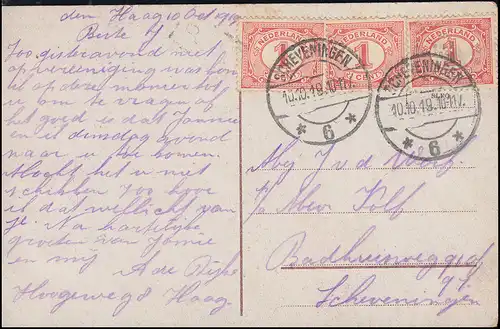 den Haag 10 Oct 1919
Beste
Zoo gisteravond niet
op vereeniging was kom
ik op deze manier tot
u om te vragen of
het goed is dat Jannie
en ik dinsdag avond
naar u te komen.
Mocht het u niet
schikken zoo hoor
ik dat wellicht van
je. Na hartelijke
groeten van Jannie
en mij
A de
Hoogeweg 8 Haag.
NEDERLAND
1
CENT
NEDERLAND
1
CENT
NEDERLAND
1
CENT
SCHEVENINGEN
10.10.19.10-11V.
* 6 *
SCHEVENINGEN
10.10.19.10-11V.
* 6 *
J v d
p/a Mevr Kolf
Badhuisweg
Scheveningen